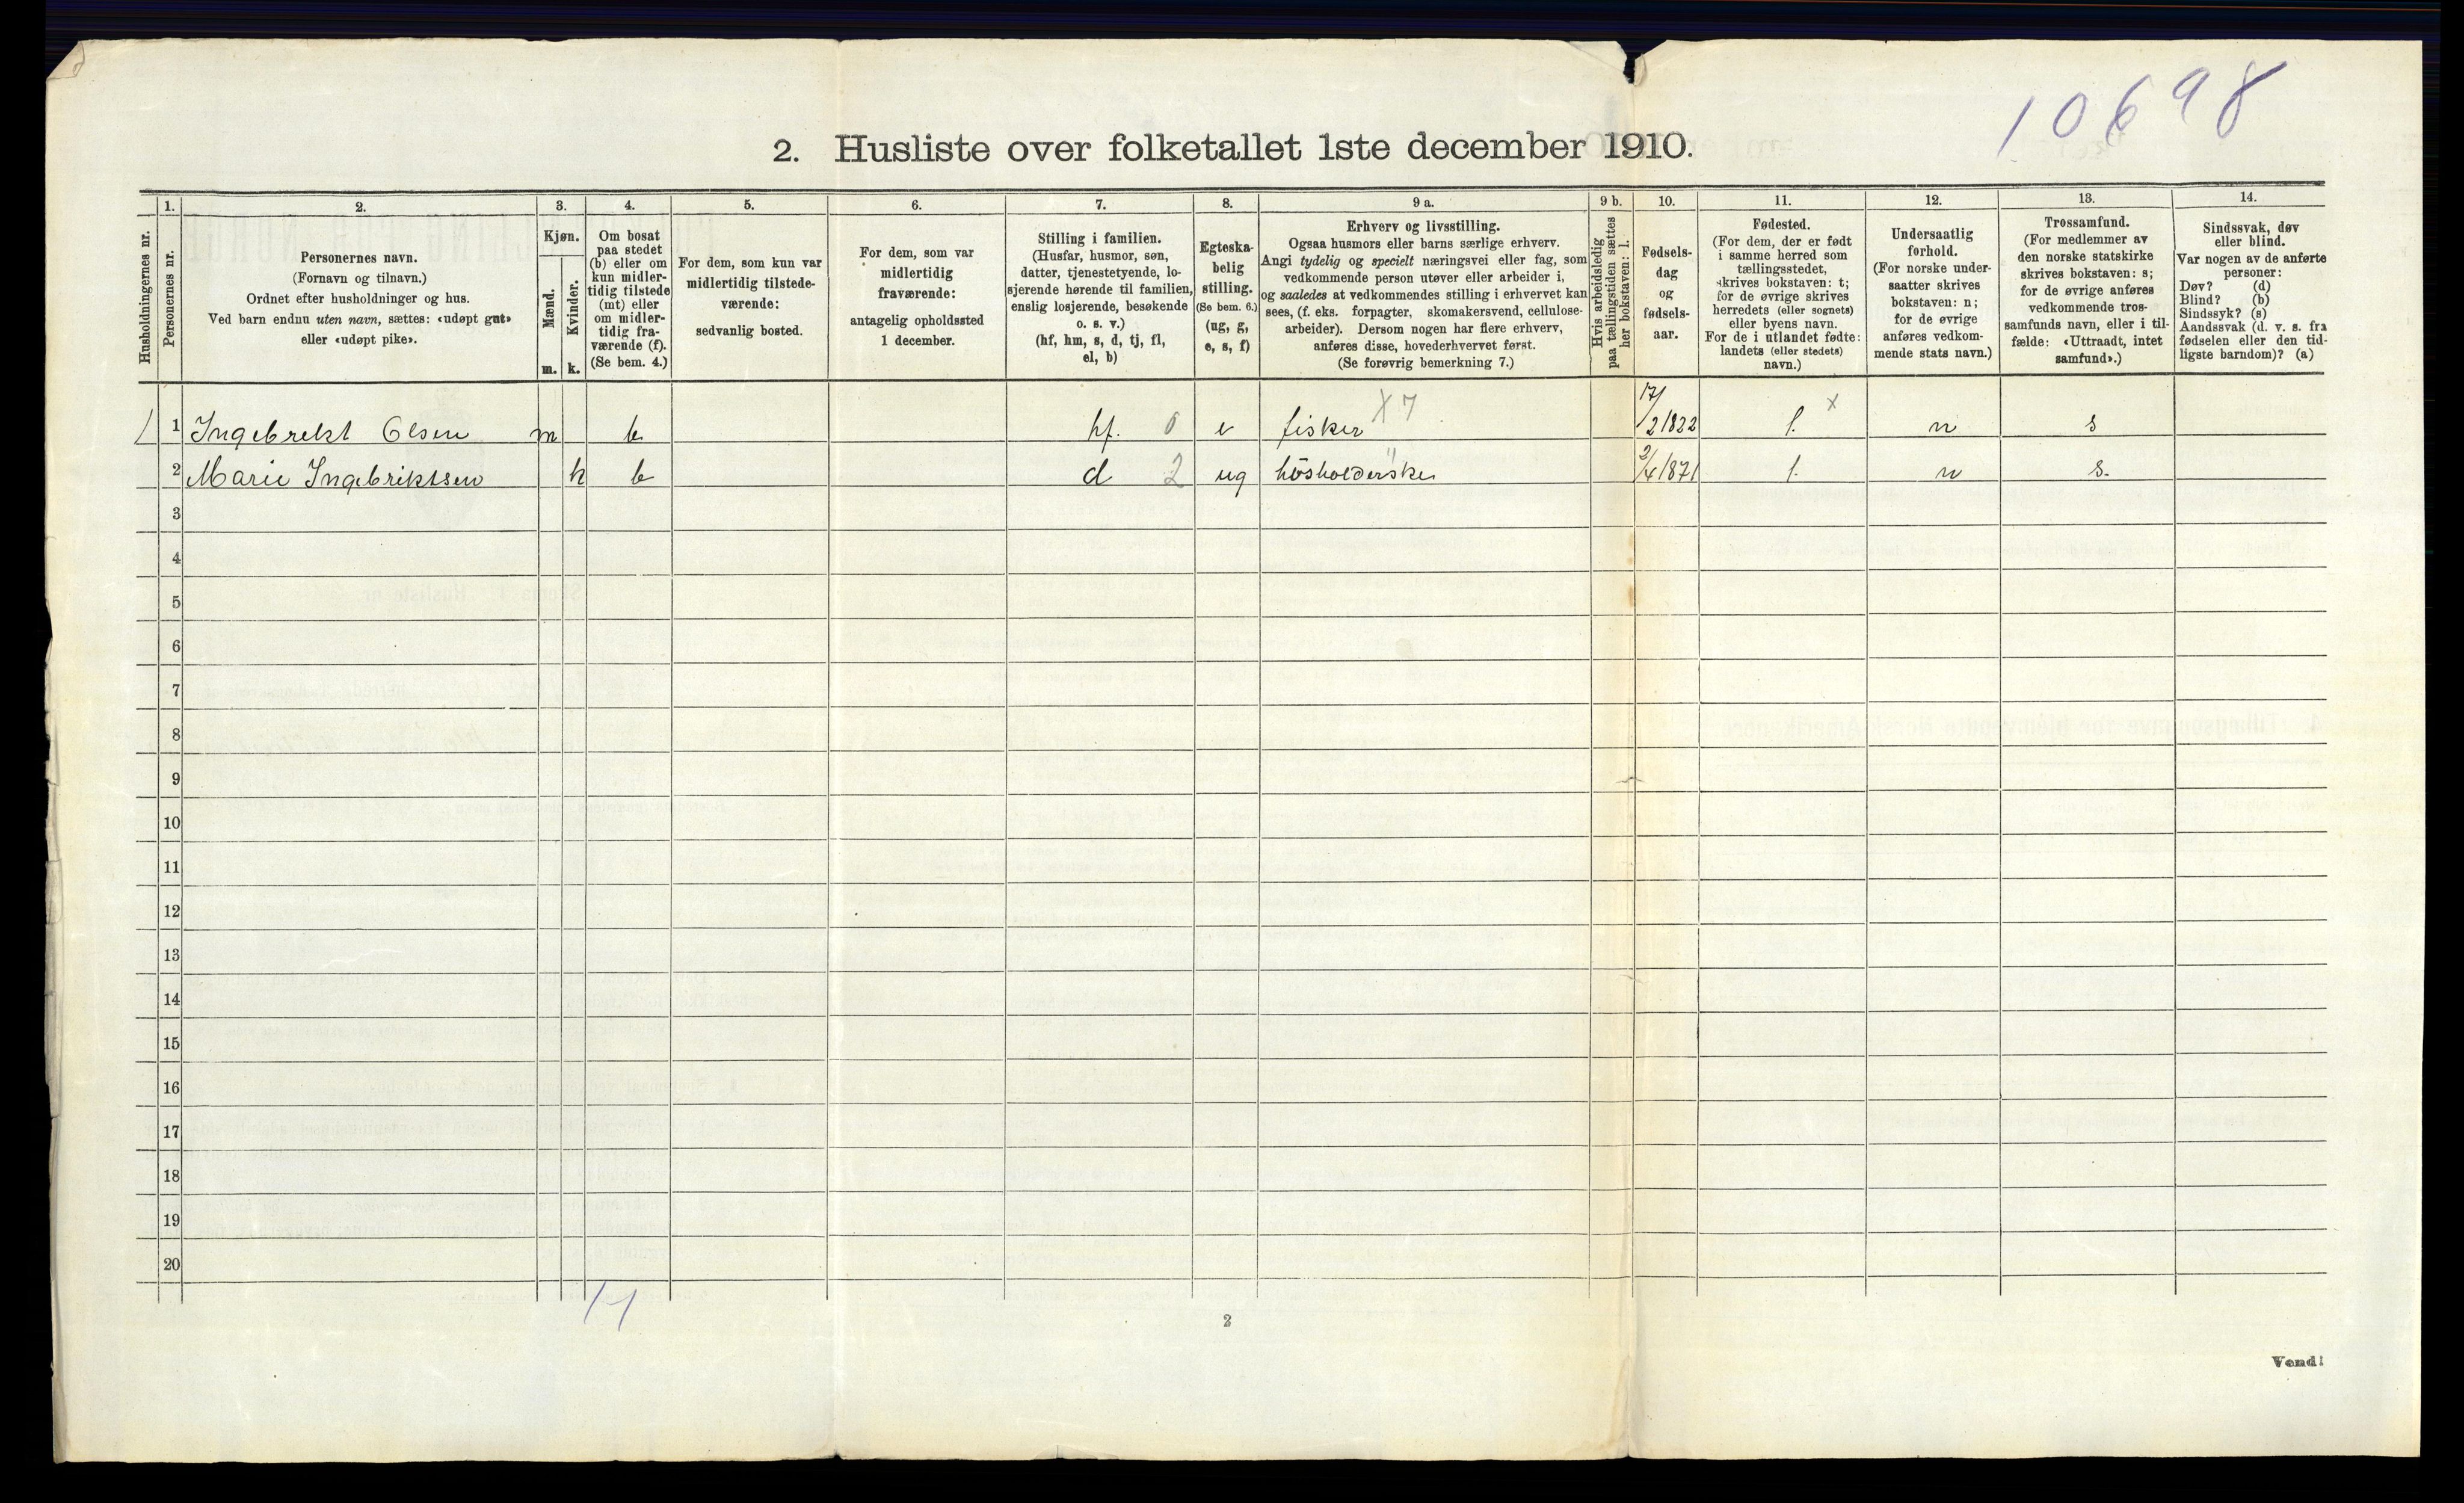 10698
2. Husliste over folketallet 1ste december 1910.
Husholdningernes nr.
1.
Personernes nr.
2.
Personernes navn.
(Fornavn og tilnavn.)
Ordnet efter husholdninger og hus.
Ved barn endnu uten navn, sættes: «udøpt gut»
eller «udøpt pike».
3.
Kjøn.
Mænd.
Kvinder.
m. k.
4.
Om bosat
paa stedet
(b) eller om
kun midler-
tidig tilstede
(mt) eller
om midler-
tidig fra-
værende (f).
(Se bem. 4.)
5.
For dem, som kun var
midlertidig tilstede-
værende:
sedvanlig bosted.
6.
For dem, som var
midlertidig
fraværende:
antagelig opholdssted
1 december.
7.
Stilling i familien.
(Husfar, husmor, søn,
datter, tjenestetyende, lo-
sjerende hørende til familien,
enslig losjerende, besøkende
o. s. v.)
(hf, hm, s, d, tj, fl,
el, b)
8.
Egteska-
belig
stilling.
(Se bem. 6.)
(ug, g,
e, s, f)
9 a.
Erhverv og livsstilling.
Ogsaa husmors eller barns særlige erhverv.
Angi tydelig og specielt næringsvei eller fag, som
vedkommende person utøver eller arbeider i,
og saaledes at vedkommendes stilling i erhvervet kan
sees, (f. eks. forpagter, skomakersvend, cellulose-
arbeider). Dersom nogen har flere erhverv,
anføres disse, hovederhvervet først.
(Se forøvrig bemerkning 7.)
9 b.
Hvis arbeidsledig
paa tællingstiden sættes
her bokstaven: l.
10.
Fødsels-
dag
og
fødsels-
aar.
11.
Fødested.
(For dem, der er født
i samme herred som
tællingsstedet,
skrives bokstaven: t;
for de øvrige skrives
herredets (eller sognets)
eller byens navn.
For de i utlandet fødte:
landets (eller stedets)
navn.)
12.
Undersaatlig
forhold.
(For norske under-
saatter skrives
bokstaven: n;
for de øvrige
anføres vedkom-
mende stats navn.)
13.
Trossamfund.
(For medlemmer av
den norske statskirke
skrives bokstaven: s;
for de øvrige anføres
vedkommende tros-
samfunds navn, eller i til-
fælde: «Uttraadt, intet
samfund».)
14.
Sindssvak, døv
eller blind.
Var nogen av de anførte
personer:
Døv? (d)
Blind? (b)
Sindssyk? (s)
Aandssvak (d. v. s. fra
fødselen eller den tid-
ligste barndom)? (a)
1 1 Ingebrekt Olsen m b hf. 0 e fisker X 7 17/2 1822 t. x n s
2 Marie Ingebriktsen k b d 2 ug hösholderske 2/4 1871 t. n s.
3
4
5
6
7
8
9
10
11
12
13
14
15
16
17
18
19
20
2
Vend!